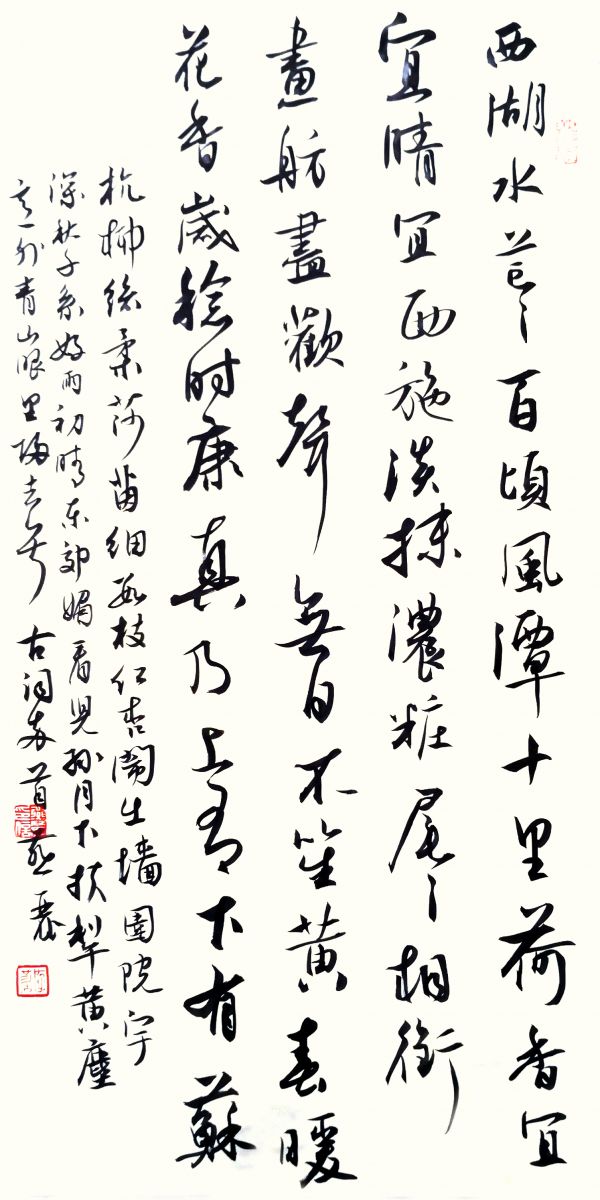 西湖水茫々百頃風潭十里荷香宜
宜晴宜西施淡抹濃粧尾々相銜
畫舫盡歡聲無日不笙黄春暖
花香歲稔時康真乃上有下有蘇
杭柳絲柔莎茵細數枝紅杏鬧出墻圍院宇
深秋千系好雨初晴東郊媚看兒孫月下扶犁黄塵
意外青山眼里歸去兮古詞兩首